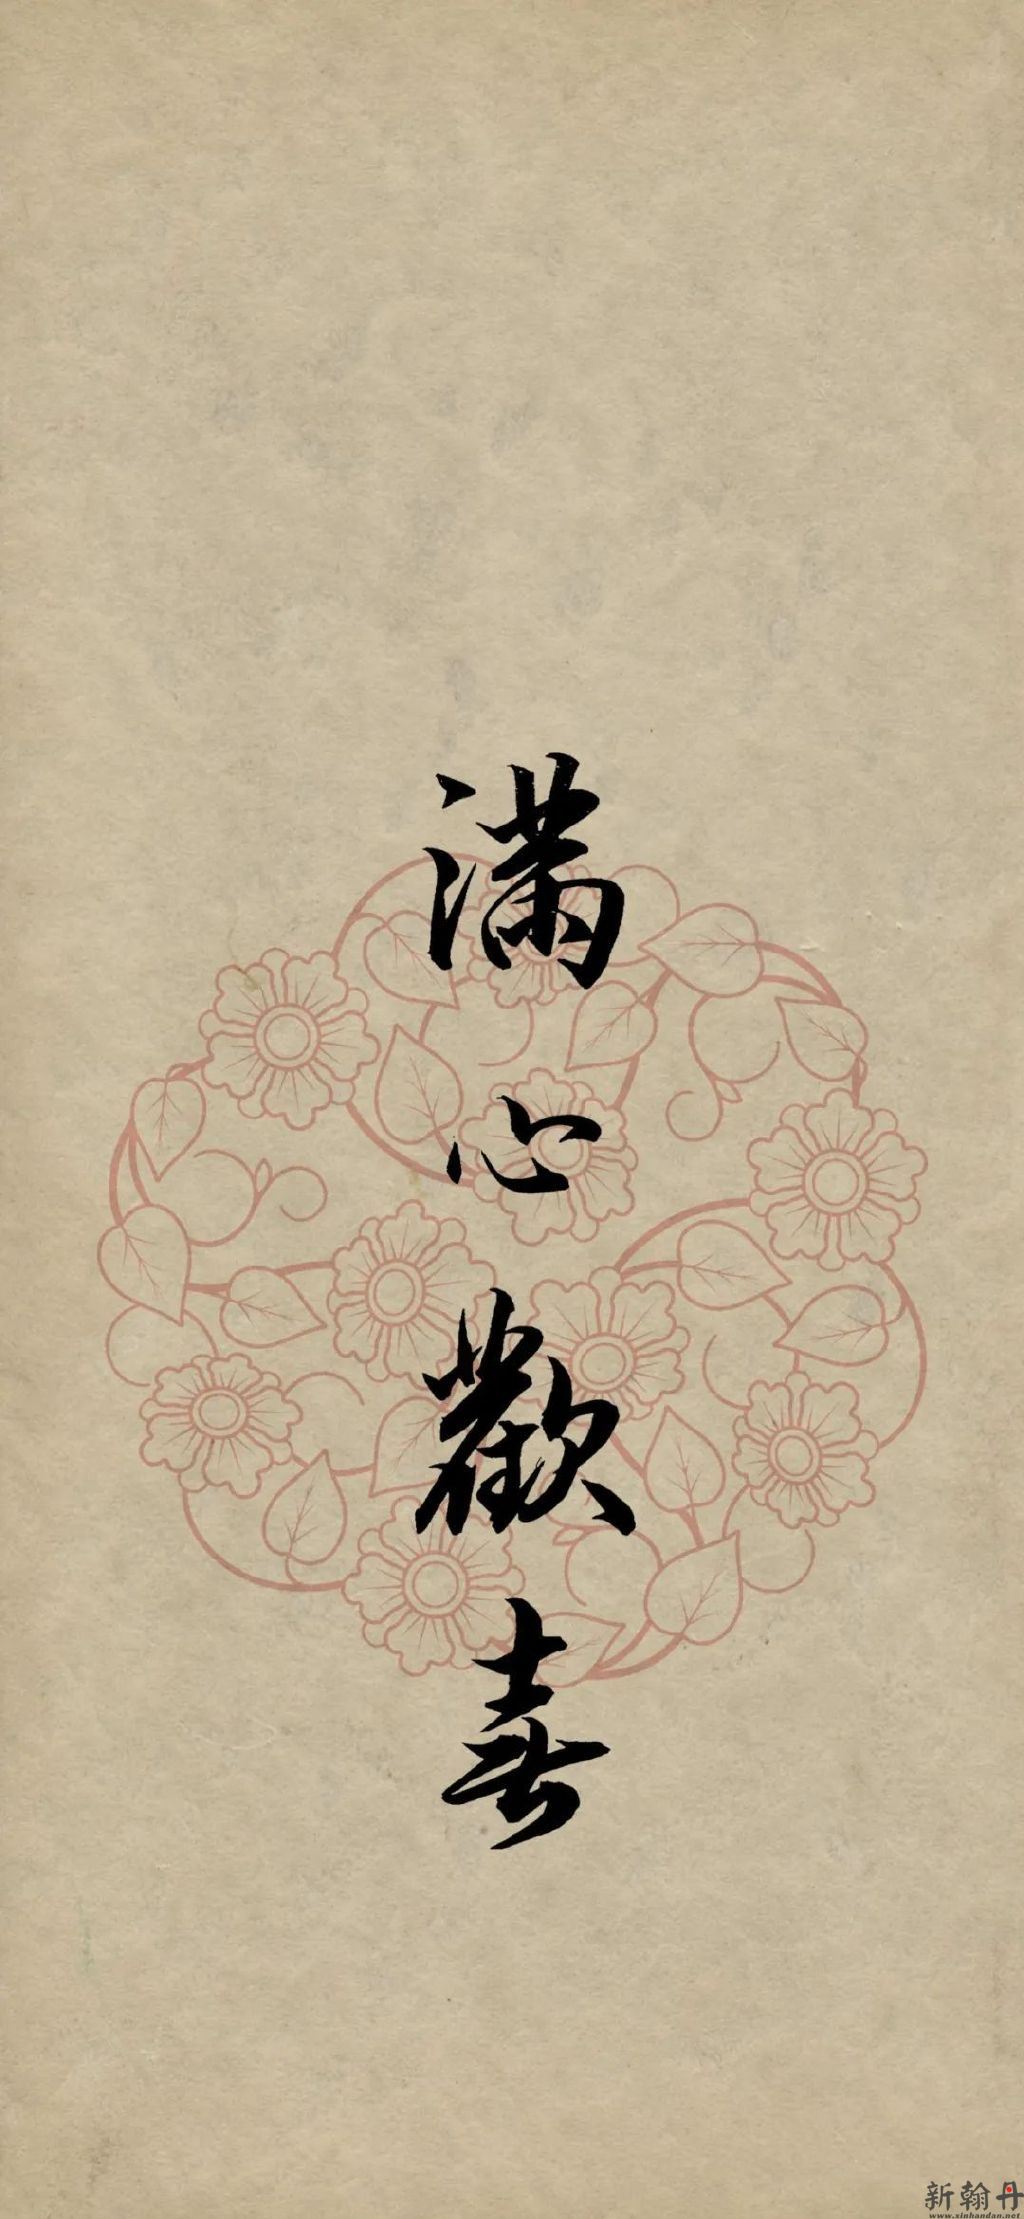 满心歡喜
新翰丹
www.xinhandan.net